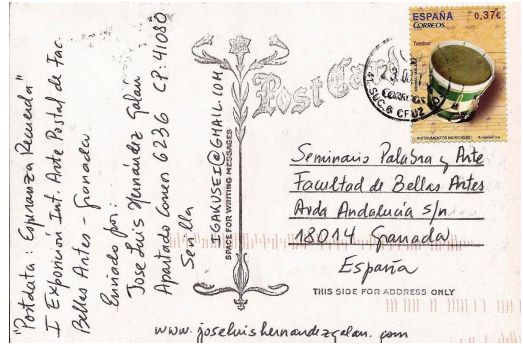 "Postdata: Esperanza Recuerda"
I Exposición Int. Arte Postal de Fac.
Bellas Artes - Granada
Enviado por:
Jose Luis Hernández Galan
Apartado Correo 6236 CP. 41080
Sevilla
IGAKUSEI@GMAIL.COM
SPACE FOR WRITING MESSAGES
Post Card
ESPAÑA 0,37€
CORREOS
Tambor
INSTRUMENTOS MUSICALES
SUC. 6 CRUZ
CORREOS
Seminario Palabra y Arte
Facultad de Bellas Artes
Avda Andalucía s/n
18014 Granada
España
THIS SIDE FOR ADDRESS ONLY
www.joseluishernandezgalan.com